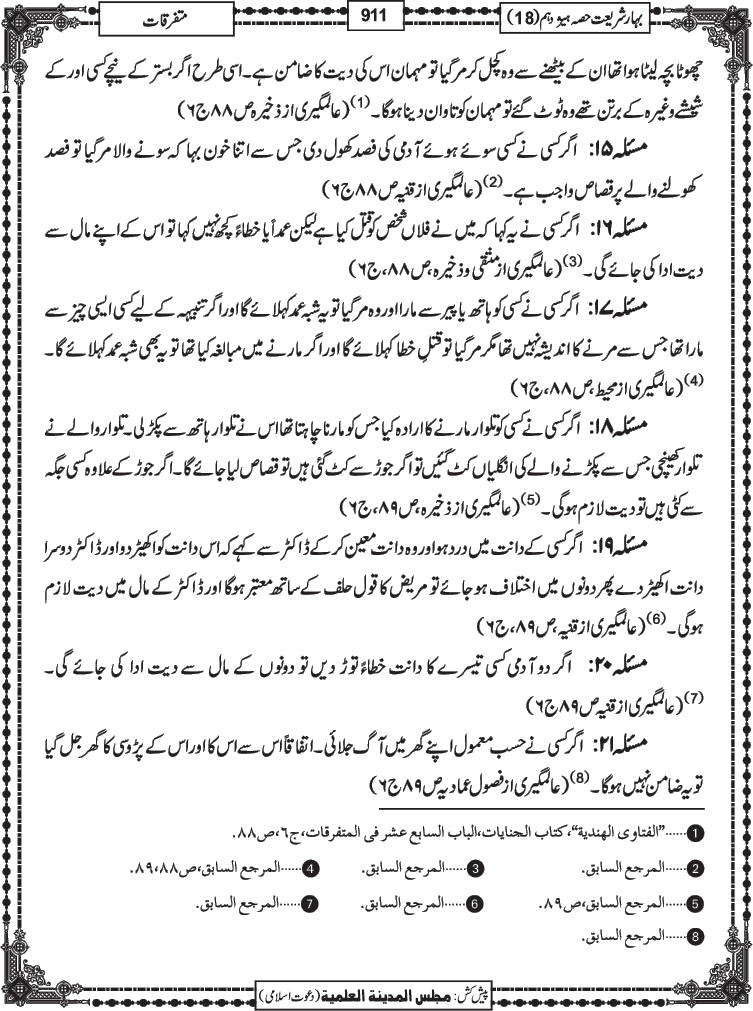 بہار شریعت حصہ ہیژدہم (18)
911
متفرقات
چھوٹا بچہ لیٹا ہوا تھا ان کے بیٹھنے سے وہ کچل کر مر گیا تو مہمان اس کی دیت کا ضامن ہے۔ اسی طرح اگر بستر کے نیچے کسی اور کے
شیشے وغیرہ کے برتن تھے وہ ٹوٹ گئے تو مہمان کو تاوان دینا ہوگا۔(1) (عالمگیری از ذخیرہ ص ۸۸ ج ۶)
مسئلہ ۱۵: اگر کسی نے کسی سوئے ہوئے آدمی کی فصد کھول دی جس سے اتنا خون بہا کہ سونے والا مر گیا تو فصد
کھولنے والے پر قصاص واجب ہے۔(2) (عالمگیری از قنیہ ص ۸۸ ج ۶)
مسئلہ ۱۶: اگر کسی نے یہ کہا کہ میں نے فلاں شخص کو قتل کیا ہے لیکن عمداً یا خطاءً کچھ نہیں کہا تو اس کے اپنے مال سے
دیت ادا کی جائے گی۔(3) (عالمگیری از منتقی وذخیرہ، ص ۸۸، ج ۶)
مسئلہ ۱۷: اگر کسی نے کسی کو ہاتھ یا پیر سے مارا اور وہ مر گیا تو یہ شبہ عمد کہلائے گا اور اگر تنبیہہ کے لیے کسی ایسی چیز سے
مارا تھا جس سے مرنے کا اندیشہ نہیں تھا مگر مر گیا تو قتلِ خطا کہلائے گا اور اگر مارنے میں مبالغہ کیا تھا تو یہ بھی شبہ عمد کہلائے گا۔
(4) (عالمگیری از محیط، ص ۸۸، ج ۶)
مسئلہ ۱۸: اگر کسی نے کسی کو تلوار مارنے کا ارادہ کیا جس کو مارنا چاہتا تھا اس نے تلوار ہاتھ سے پکڑ لی۔ تلوار والے نے
تلوار کھینچی جس سے پکڑنے والے کی انگلیاں کٹ گئیں تو اگر جوڑ سے کٹ گئی ہیں تو قصاص لیا جائے گا۔ اگر جوڑ کے علاوہ کسی جگہ
سے کٹی ہیں تو دیت لازم ہوگی۔(5) (عالمگیری از ذخیرہ، ص ۸۹، ج ۶)
مسئلہ ۱۹: اگر کسی کے دانت میں درد ہو اور وہ دانت معین کرکے ڈاکٹر سے کہے کہ اس دانت کو اکھیڑ دو اور ڈاکٹر دوسرا
دانت اکھیڑ دے پھر دونوں میں اختلاف ہو جائے تو مریض کا قول حلف کے ساتھ معتبر ہوگا اور ڈاکٹر کے مال میں دیت لازم
ہوگی۔(6) (عالمگیری از قنیہ، ص ۸۹، ج ۶)
مسئلہ ۲۰: اگر دو آدمی کسی تیسرے کا دانت خطاءً توڑ دیں تو دونوں کے مال سے دیت ادا کی جائے گی۔
(7) (عالمگیری از قنیہ ص ۸۹ ج ۶)
مسئلہ ۲۱: اگر کسی نے حسب معمول اپنے گھر میں آگ جلائی۔ اتفاقاً اس سے اس کا اور اس کے پڑوسی کا گھر جل گیا
تو یہ ضامن نہیں ہوگا۔(8) (عالمگیری از فصول عمادیہ ص ۸۹ ج ۶)
1 ......"الفتاوى الهندية"، كتاب الجنايات، الباب السابع عشر فى المتفرقات، ج٦، ص٨٨.
2 ......المرجع السابق. 3 ......المرجع السابق. 4 ......المرجع السابق، ص٨٨، ٨٩.
5 ......المرجع السابق، ص٨٩. 6 ......المرجع السابق. 7 ......المرجع السابق.
8 ......المرجع السابق.
پیش کش: مجلس المدينة العلمية (دعوت اسلامی)